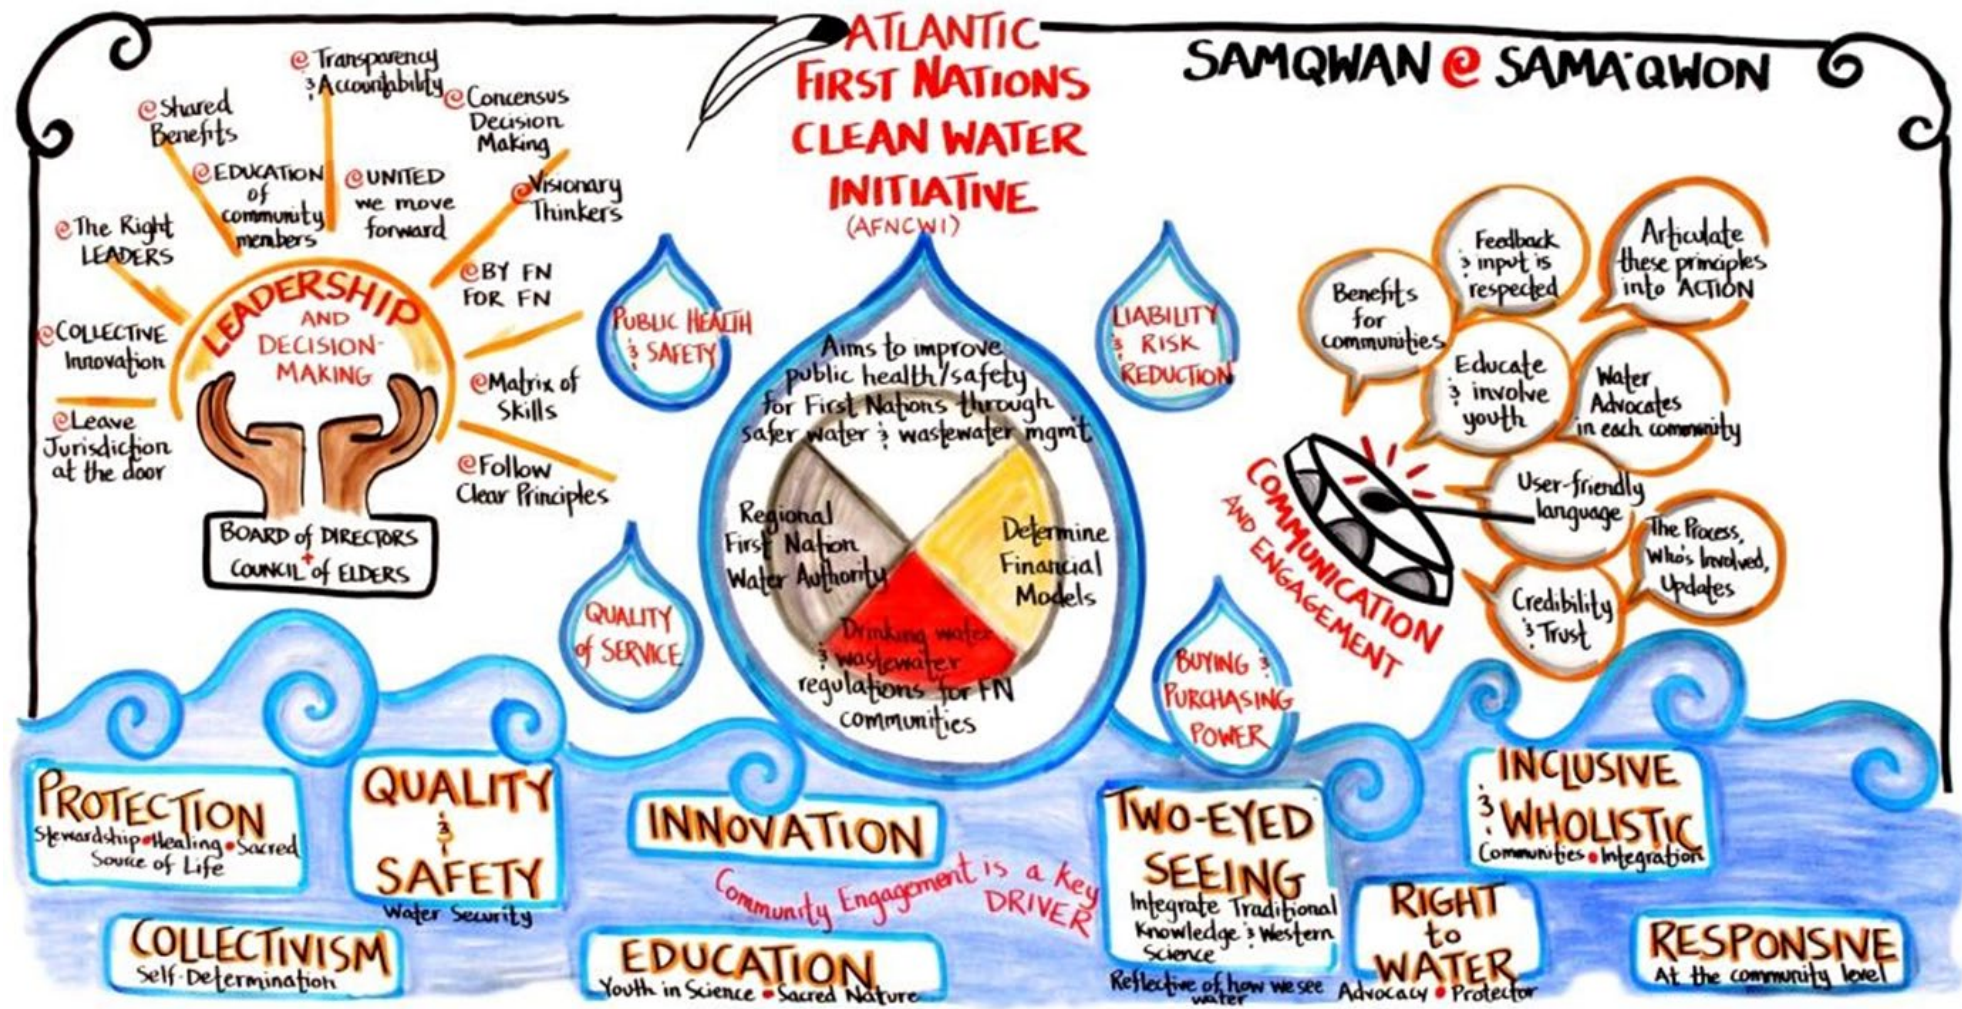 ATLANTIC
FIRST NATIONS
CLEAN WATER
INITIATIVE
(AFNCWI)
SAMQWAN @ SAMA'QWON
@ Transparency
& Accountability
@ Shared
Benefits
@ Concensus
Decision
Making
@ EDUCATION
of
community
members
@ UNITED
we move
forward
@ Visionary
Thinkers
@ The Right
LEADERS
@ BY FN
FOR FN
@ COLLECTIVE
Innovation
@ Matrix of
Skills
@ Leave
Jurisdiction
at the door
@ Follow
Clear Principles
LEADERSHIP
AND
DECISION-
MAKING
BOARD of DIRECTORS
+
COUNCIL of ELDERS
PUBLIC HEALTH
& SAFETY
LIABILITY
& RISK
REDUCTION
QUALITY
of SERVICE
BUYING &
PURCHASING
POWER
Aims to improve
public health/safety
for First Nations through
safer water & wastewater mgmt
Regional
First Nation
Water Authority
Determine
Financial
Models
Drinking water
& wastewater
regulations for FN
communities
Benefits
for
communities
Feedback
& input is
respected
Articulate
these principles
into ACTION
Educate
& involve
youth
Water
Advocates
in each community
User-friendly
language
The Process,
Who's Involved,
Updates
Credibility
& Trust
COMMUNICATION
AND ENGAGEMENT
PROTECTION
Stewardship • Healing • Sacred
Source of Life
QUALITY
&
SAFETY
Water Security
COLLECTIVISM
Self-Determination
INNOVATION
Community Engagement is a key
DRIVER
EDUCATION
Youth in Science • Sacred Nature
TWO-EYED
SEEING
Integrate Traditional
Knowledge & Western
Science
Reflective of how we see
water
INCLUSIVE
& WHOLISTIC
Communities • Integration
RIGHT
to
WATER
Advocacy • Protector
RESPONSIVE
At the community level